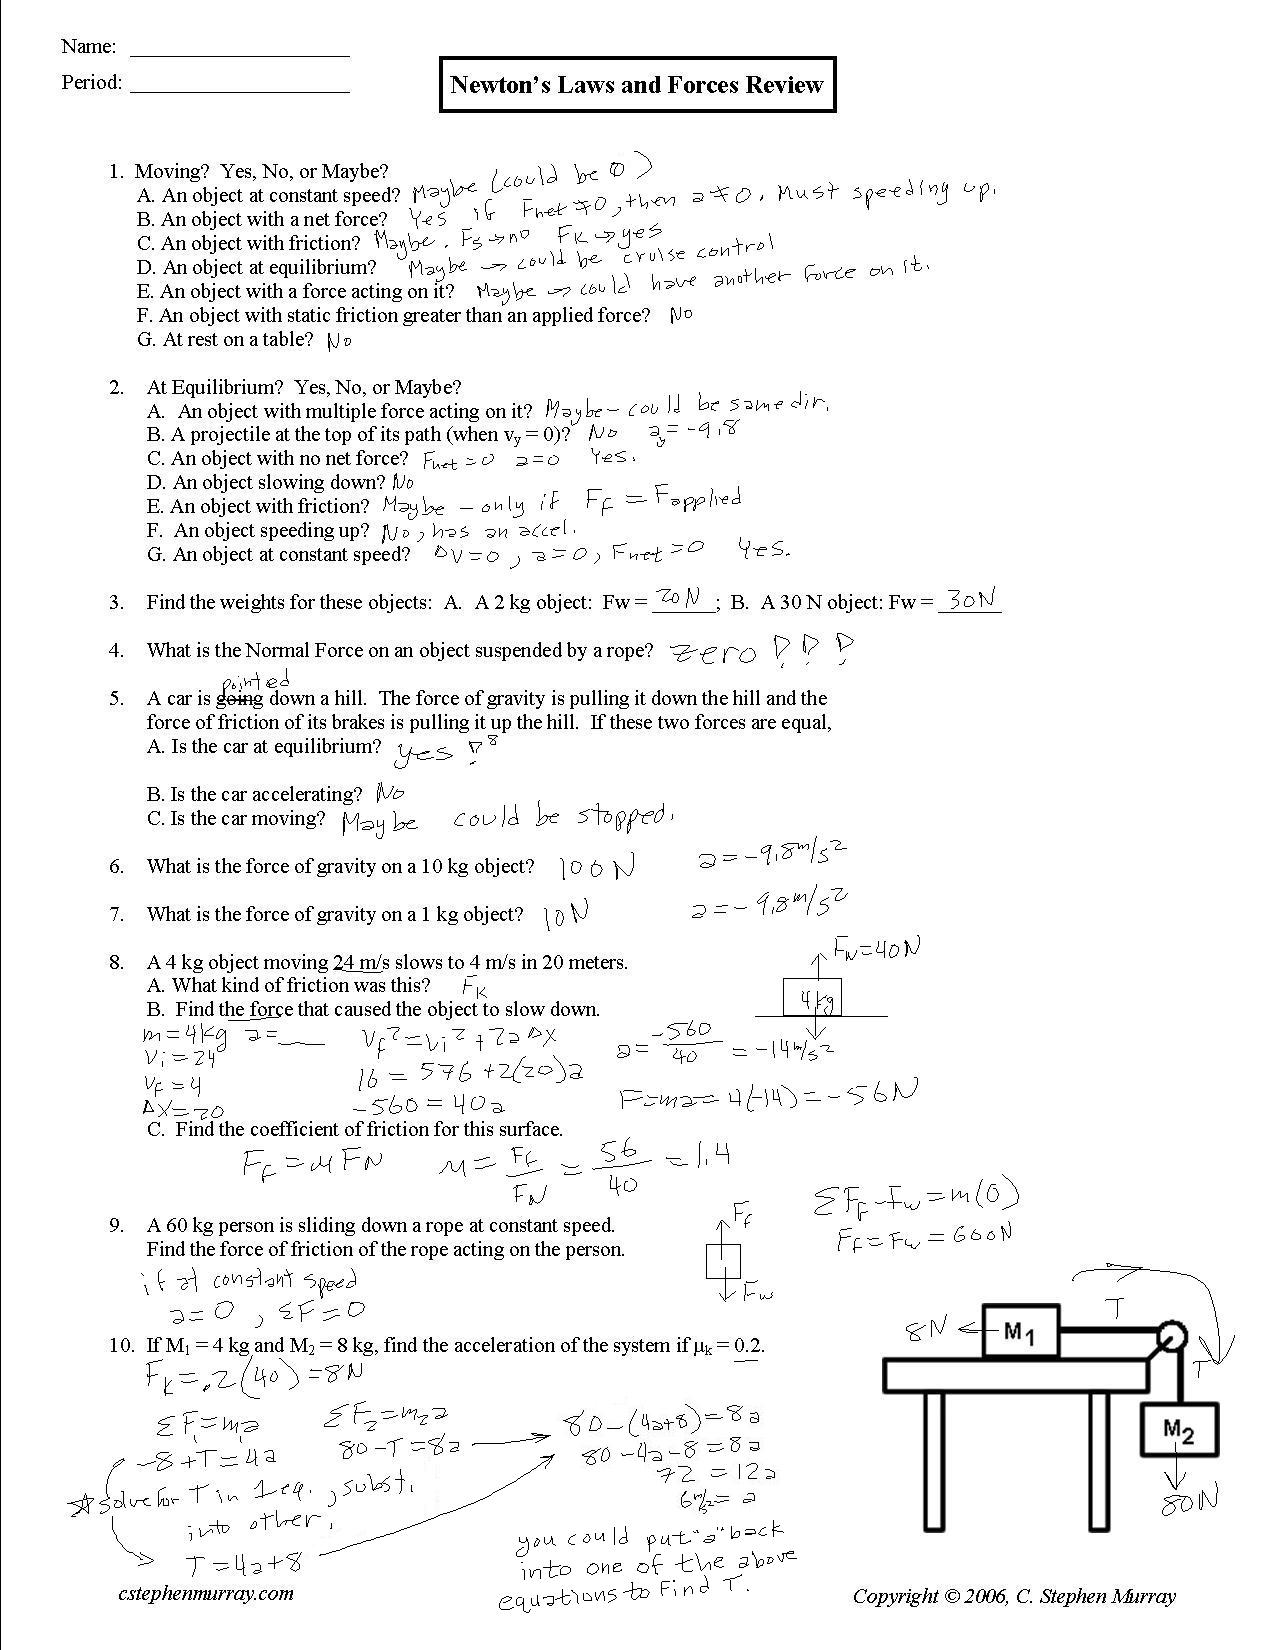 Name:
Period:
Newton's Laws and Forces Review
1. Moving? Yes, No, or Maybe?
A. An object at constant speed? Maybe (could be 0)
B. An object with a net force? Yes if Fnet ≠ 0, then a ≠ 0. Must speeding up.
C. An object with friction? Maybe. Fs → no FK → yes
D. An object at equilibrium? Maybe → could be cruise control
E. An object with a force acting on it? Maybe → could have another force on it.
F. An object with static friction greater than an applied force? No
G. At rest on a table? No
2. At Equilibrium? Yes, No, or Maybe?
A. An object with multiple force acting on it? Maybe - could be same dir.
B. A projectile at the top of its path (when vy = 0)? No ay = -9.8
C. An object with no net force? Fnet = 0 a = 0 Yes.
D. An object slowing down? No
E. An object with friction? Maybe - only if Ff = Fapplied
F. An object speeding up? No, has an accel.
G. An object at constant speed? ΔV = 0, a = 0, Fnet = 0 Yes.
3. Find the weights for these objects: A. A 2 kg object: Fw = 20N; B. A 30 N object: Fw = 30N
4. What is the Normal Force on an object suspended by a rope? zero !!!
pointed
5. A car is going down a hill. The force of gravity is pulling it down the hill and the
force of friction of its brakes is pulling it up the hill. If these two forces are equal,
A. Is the car at equilibrium? yes !
B. Is the car accelerating? No
C. Is the car moving? Maybe could be stopped.
6. What is the force of gravity on a 10 kg object? 100N a = -9.8 m/s²
7. What is the force of gravity on a 1 kg object? 10N a = -9.8 m/s²
8. A 4 kg object moving 24 m/s slows to 4 m/s in 20 meters.
FN = 40N
A. What kind of friction was this? FK
4kg
B. Find the force that caused the object to slow down.
m = 4kg a = ___ Vf² = Vi² + 2aΔX a = -560/40 = -14 m/s²
Vi = 24
16 = 576 + 2(20)a
Vf = 4
F = ma = 4(-14) = -56N
ΔX = 20 -560 = 40a
C. Find the coefficient of friction for this surface.
Ff = μFN μ = Ff/FN = 56/40 = 1.4
9. A 60 kg person is sliding down a rope at constant speed.
Find the force of friction of the rope acting on the person.
Ff
Fw
ΣFf - Fw = m(0)
Ff = Fw = 600N
if at constant speed
a = 0, ΣF = 0
10. If M1 = 4 kg and M2 = 8 kg, find the acceleration of the system if μk = 0.2.
FK = .2(40) = 8N
8N M1 T
T
M2
80N
ΣF1 = m1a ΣF2 = m2a 80 - (4a+8) = 8a
-8 + T = 4a 80 - T = 8a 80 - 4a - 8 = 8a
72 = 12a
solve for T in 1 eq., subst. 6 m/s² = a
into other.
T = 4a + 8
you could put "a" back
into one of the above
equations to find T.
cstephenmurray.com
Copyright © 2006, C. Stephen Murray